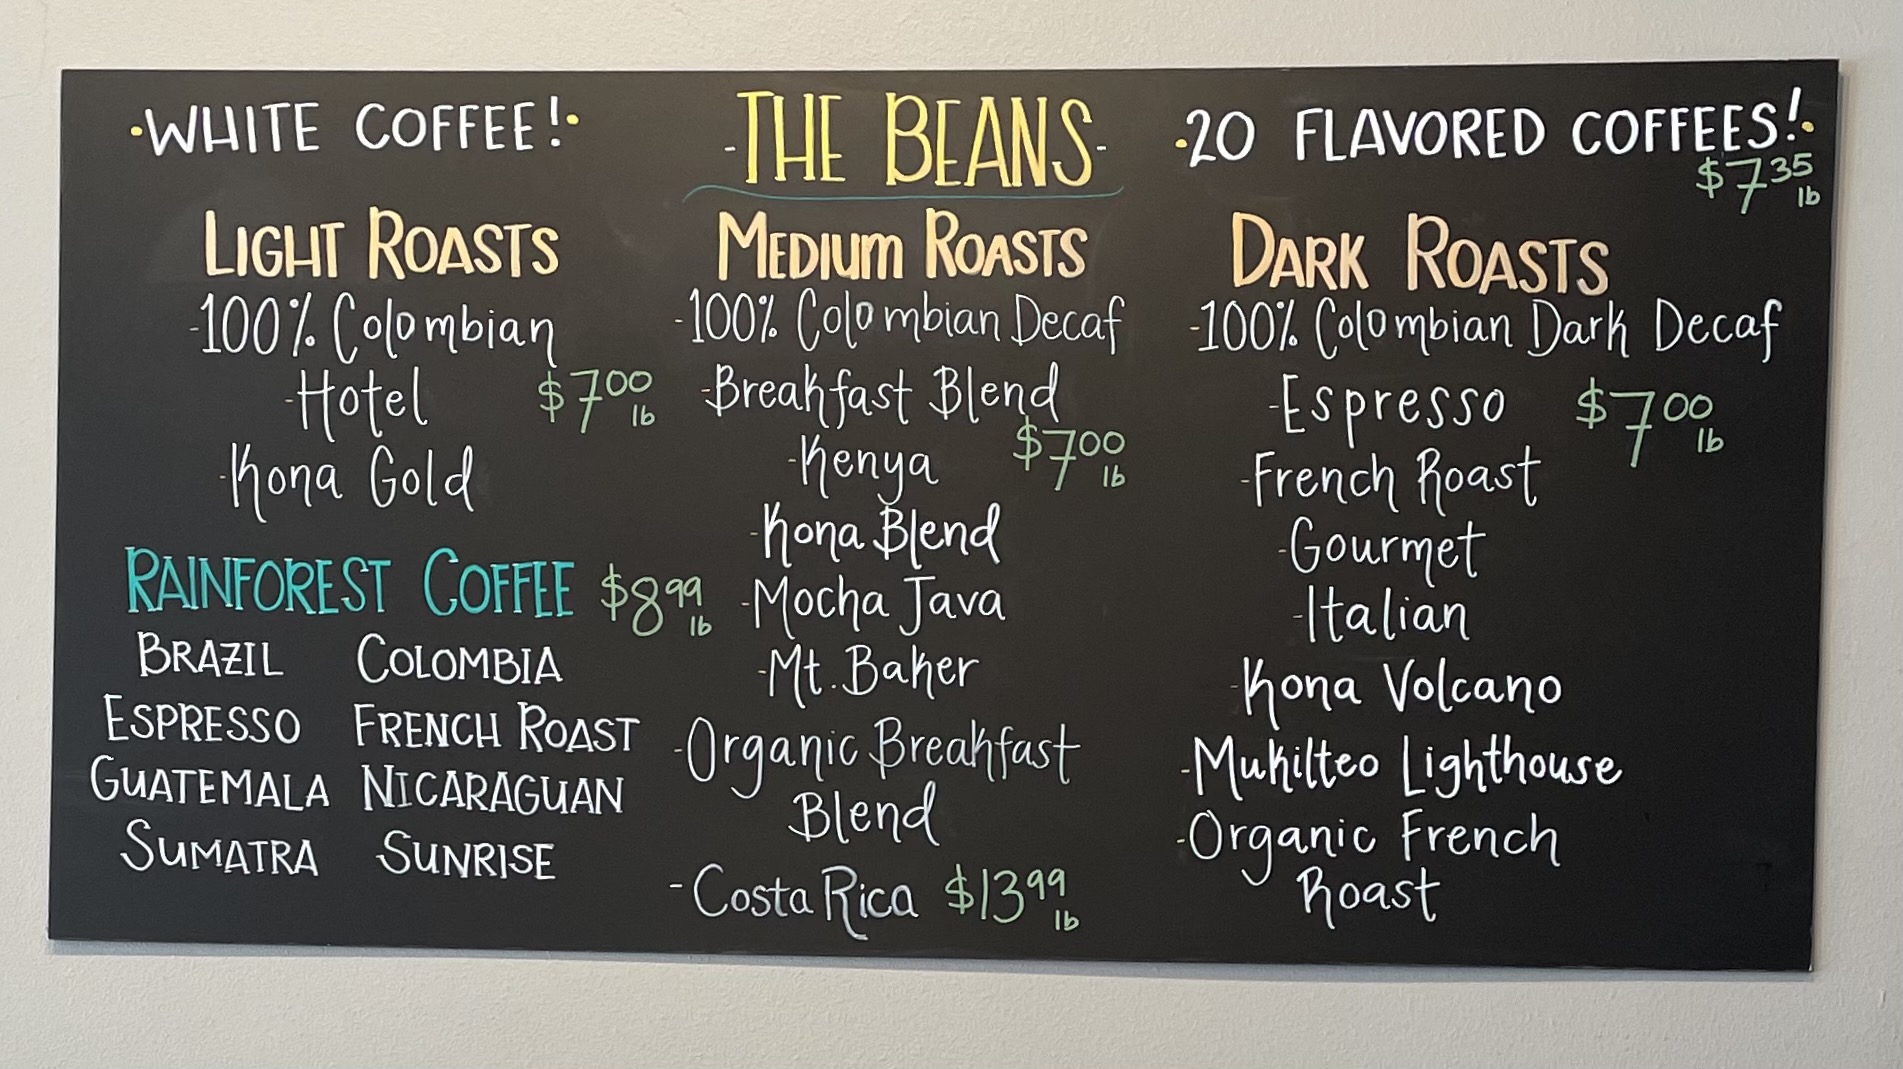 ·WHITE COFFEE!·
-THE BEANS-
·20 FLAVORED COFFEES!·
$7.35 lb
LIGHT ROASTS
-100% Colombian
-Hotel $7.00 lb
-Kona Gold
RAINFOREST COFFEE $8.99 lb
BRAZIL COLOMBIA
ESPRESSO FRENCH ROAST
GUATEMALA NICARAGUAN
SUMATRA SUNRISE
MEDIUM ROASTS
-100% Colombian Decaf
-Breakfast Blend
-Kenya $7.00 lb
-Kona Blend
-Mocha Java
-Mt. Baker
-Organic Breakfast
Blend
-Costa Rica $13.99 lb
DARK ROASTS
-100% Colombian Dark Decaf
-Espresso $7.00 lb
-French Roast
-Gourmet
-Italian
-Kona Volcano
-Mukilteo Lighthouse
-Organic French
Roast